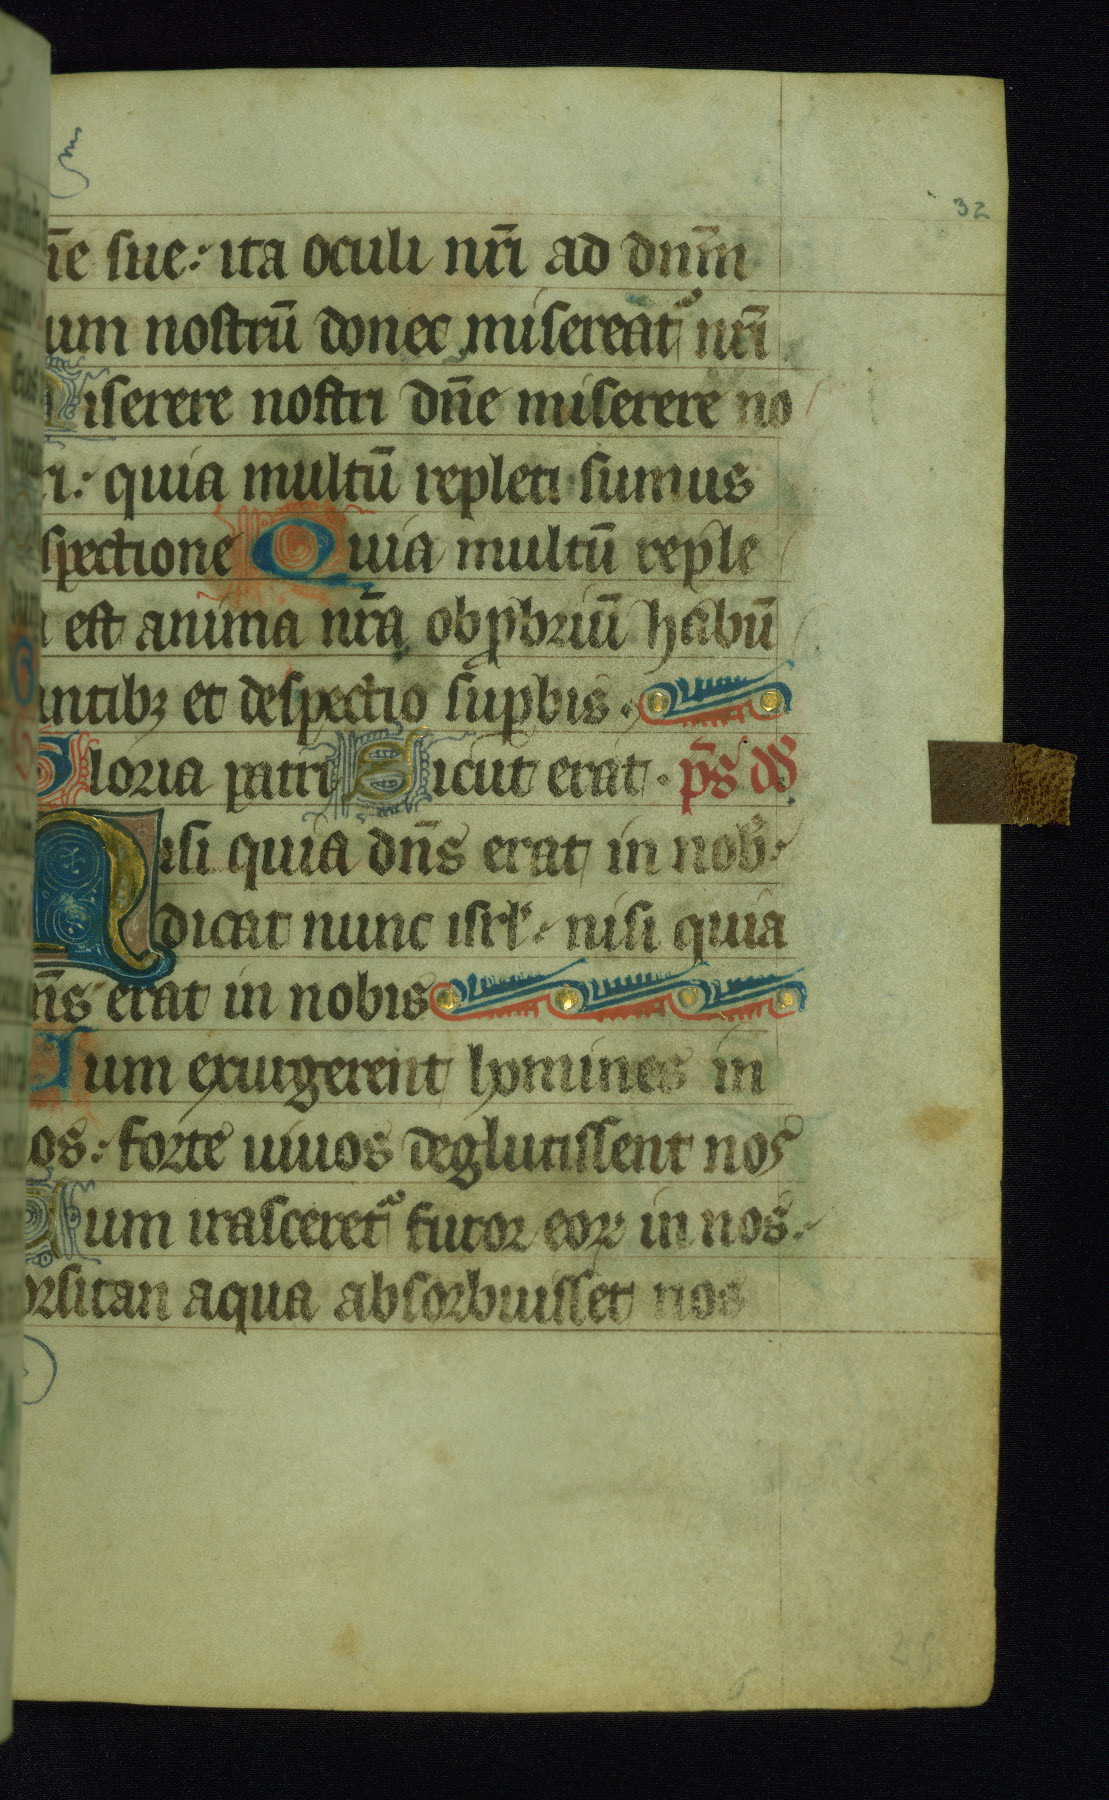 32
n̄e sue: ita oculi nr̄i ad dnm̄
um nostrū donec misereat᷑ nr̄i
Miserere nostri dn̄e miserere no
ri: quia multū repleti sumus
spectione Quia multū reple
est anima nr̄a obp̱briū habū
antibꝫ et despectio suꝑbis.
Gloria patri Sicut erat. p̄s dd̄
Nisi quia dn̄s erat in nob̄:
dicat nunc isrl̄: nisi quia
n̄s erat in nobis
Cum exurgerent homines in
os: forte uiuos deglutissent nos
Cum irasceret᷑ furor eoꝝ in nos:
orsitan aqua absorbuisset nos